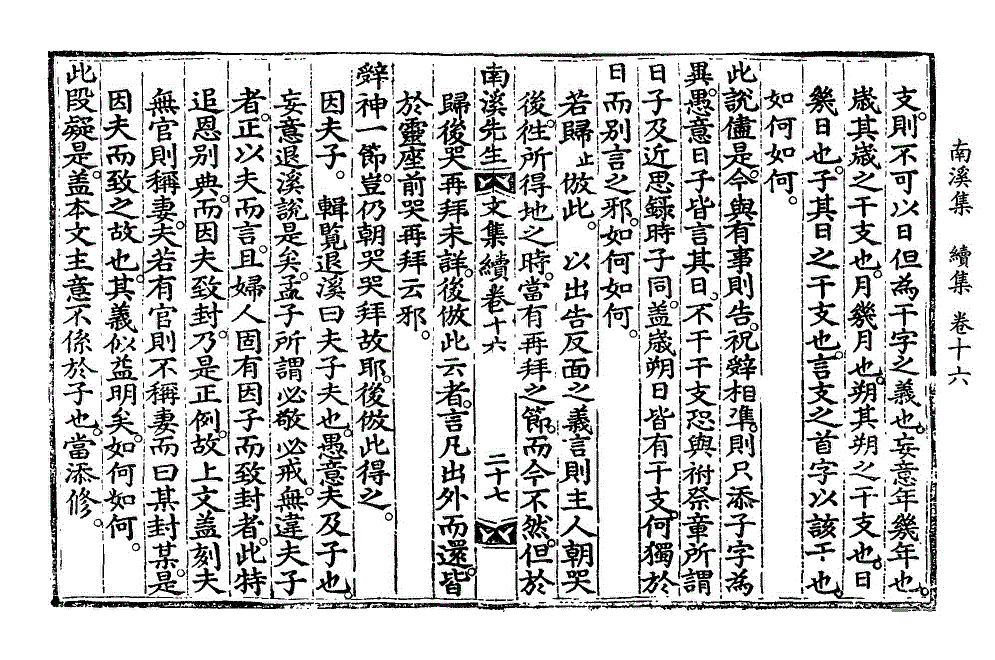 南溪集　續集　卷十六
支則不可以日但為干字之義也。妄意年幾年也。
歲其歲之干支也。月幾月也。朔其朔之干支也。日
幾日也。子其日之干支也。言支之首字以該干也。
如何如何。
此說儘是。今與有事則告。祝辭相準。則只添子字為
異。愚意日子皆言其日。不干干支。恐與祔祭章所謂
日子及近思錄時子同。蓋歲朔日皆有干支。何獨於
日而別言之邪。如何如何。
若歸止倣此。　以出告反面之義言。則主人朝哭
後。往所得地之時。當有再拜之節。而今不然。但於
南溪先生文集續卷十六　二十七
歸後哭再拜未詳。後倣此云者。言凡出外而遠。皆
於靈座前哭再拜云邪。
辭神一節。豈仍朝哭哭拜故耶。後倣此得之。
因夫子。　輯覽退溪曰夫子夫也。愚意夫及子也。
妄意退溪說是矣。孟子所謂必敬必戒。無違夫子
者。正以夫而言。且婦人固有因子而致封者。此特
追恩別典。而因夫致封。乃是正例。故上文蓋刻夫
無官則稱妻。夫若有官則不稱妻而曰某封某。是
因夫而致之故也。其義似益明矣。如何如何。
此段疑是。蓋本文主意不係於子也。當添修。